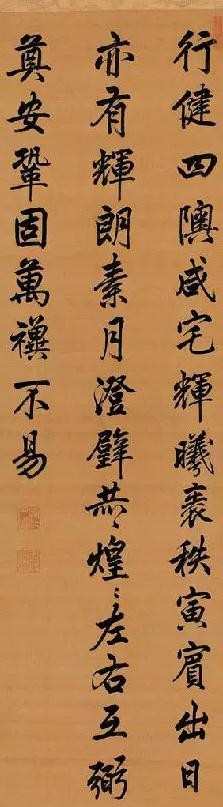 行健四隩咸宅輝曦秩寅賓出日
亦有輝朗素月澄璧煌〻左右互弼
奠安鞏固萬禩不易